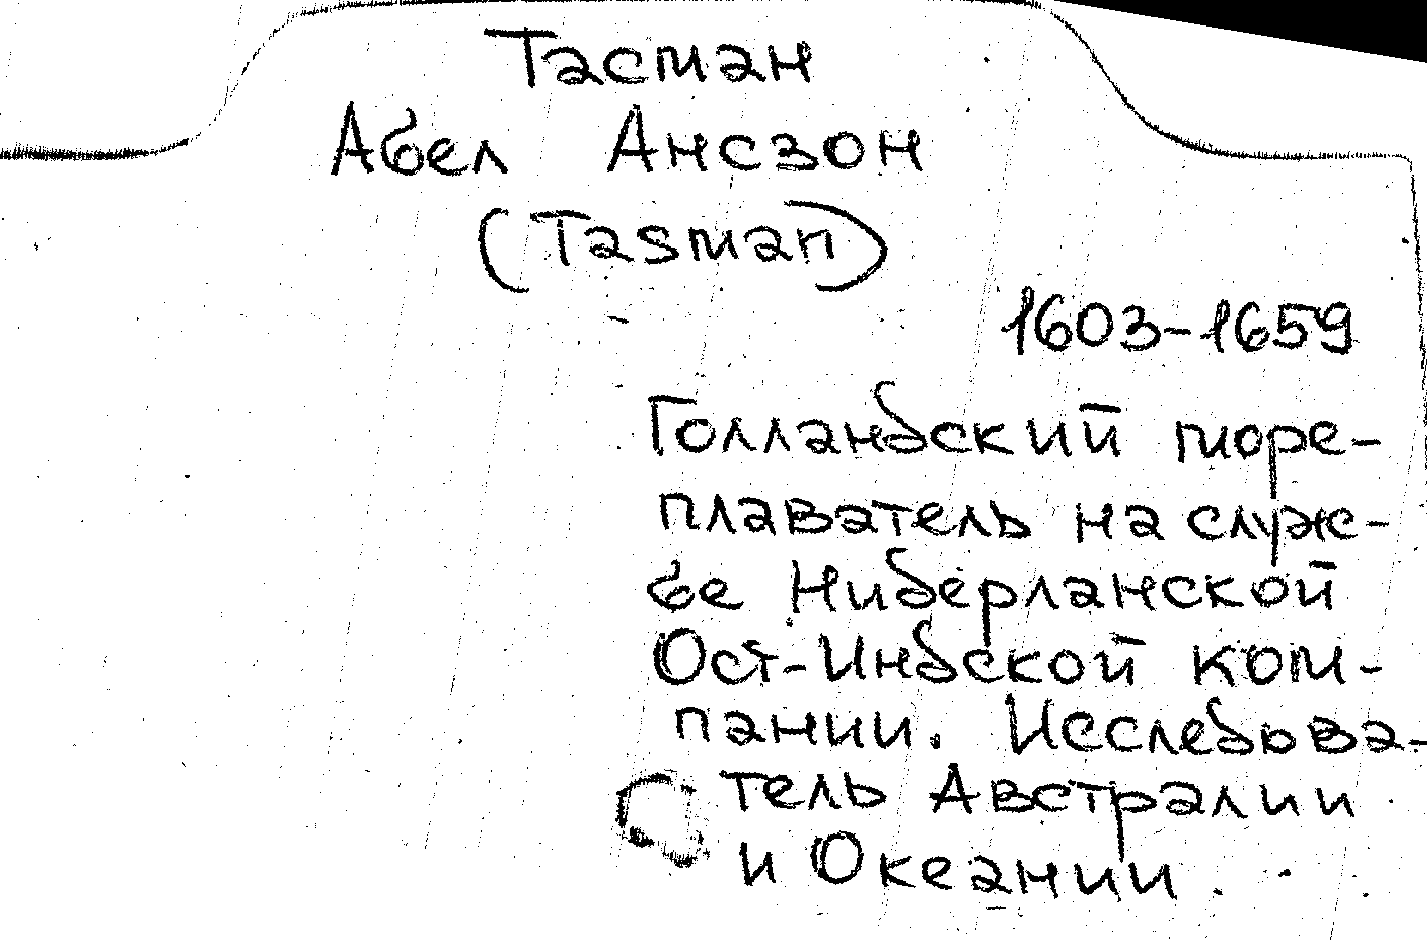 Тасман
Абел Ансзон
(Tasman)
1603-1659
Голландский море-
плаватель на служ-
бе Нидерланской
Ост-Индской ком-
пании. Исследова-
тель Австралии
и Океании.